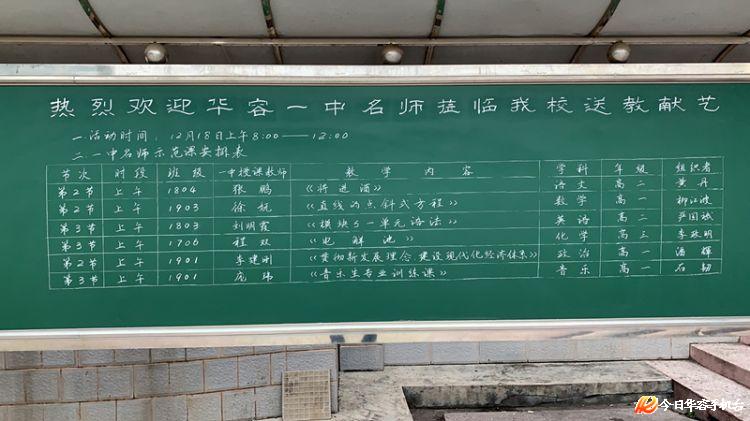 热烈欢迎华容一中名师莅临我校送教献艺
一.活动时间：12月18日上午8:00——12:00
二.一中名师示范课安排表
节次 时段 班级 一中授课教师 教学内容 学科 年级 组织者
第2节 上午 1804 张鹏 《将进酒》 语文 高二 黄丹
第2节 上午 1903 徐妩 《直线的点斜式方程》 数学 高一 柳江波
第3节 上午 1803 刘明霞 《模块5一单元语法》 英语 高二 严国斌
第3节 上午 1706 程双 《电解池》 化学 高三 李政明
第2节 上午 1901 李建刚 《贯彻新发展理念 建设现代化经济体系》 政治 高一 潘辉
第3节 上午 1901 庞玮 《音乐生专业训练课》 音乐 高一 石韧
今日华容手机台